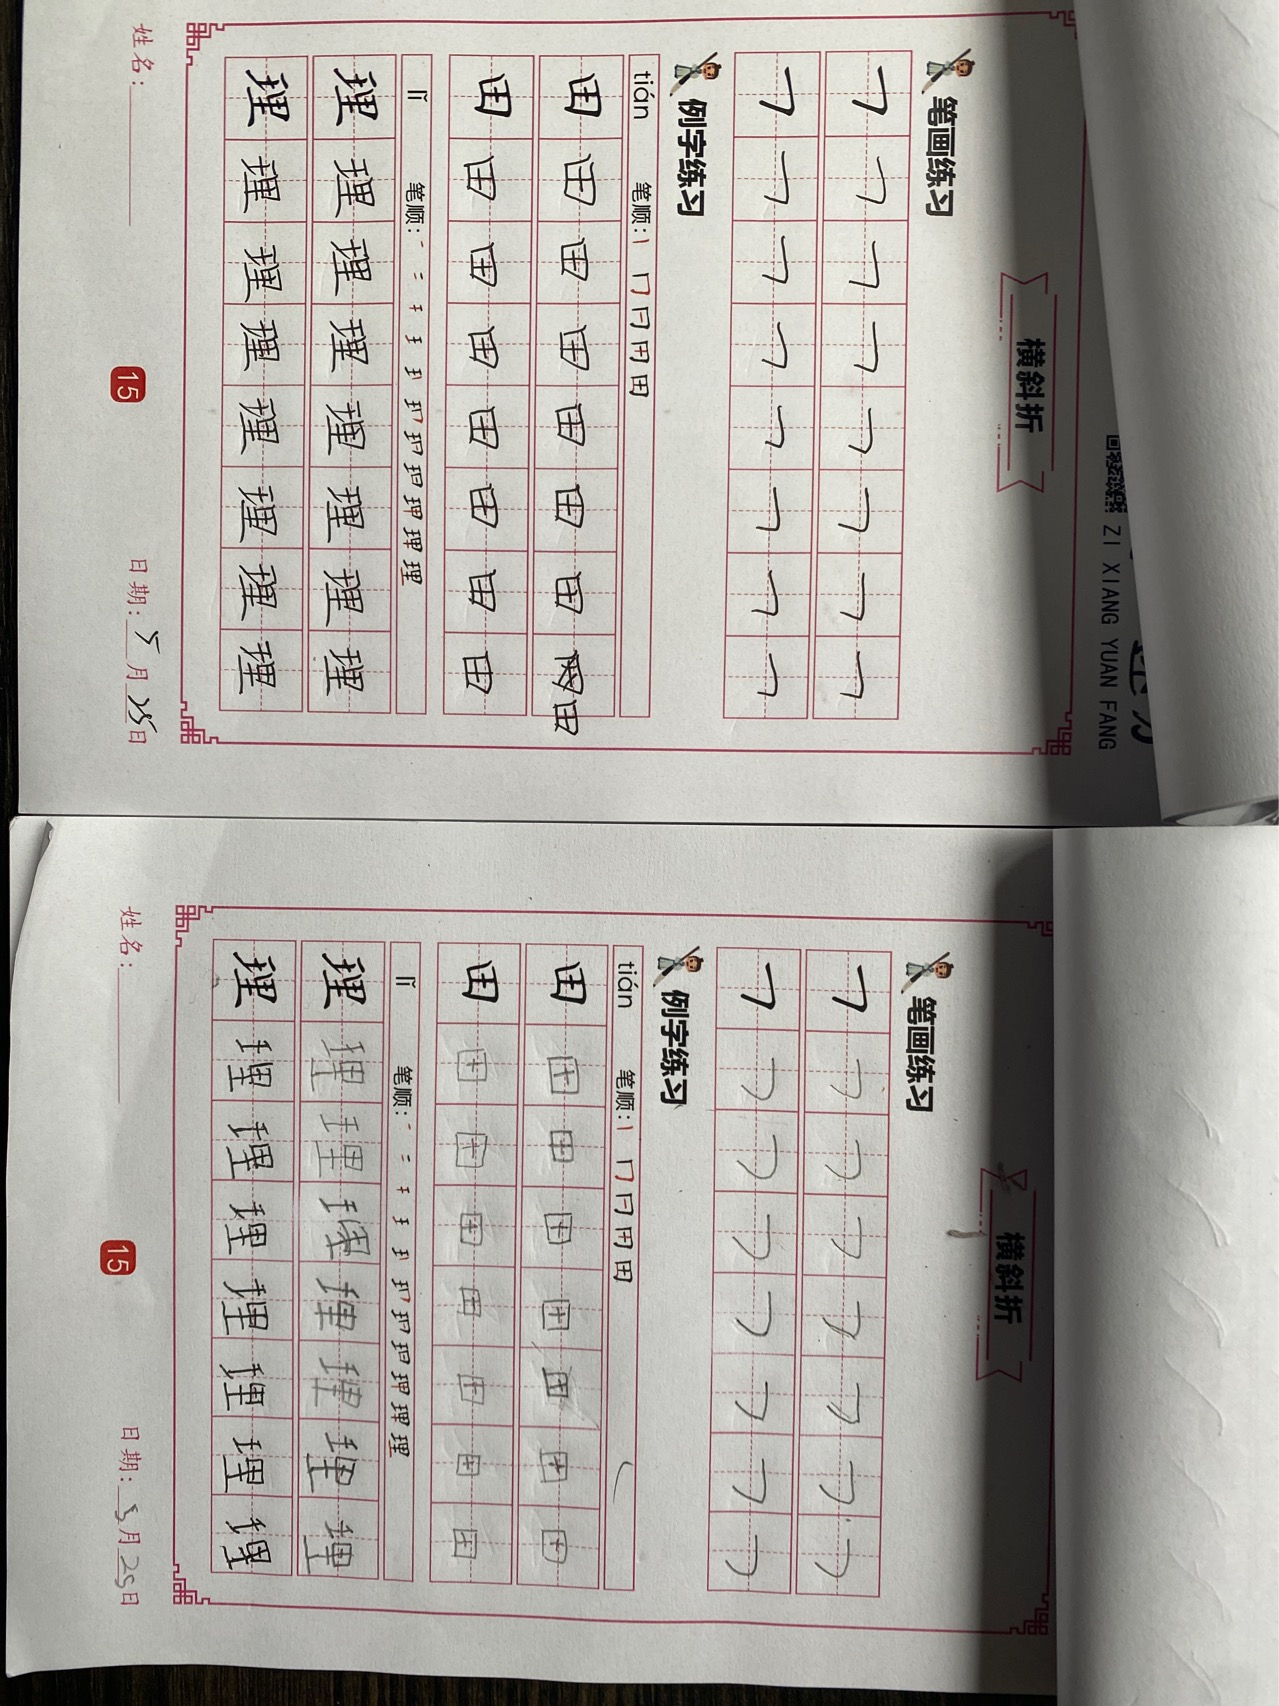 ZI XIANG YUAN FANG
横斜折
笔画练习
㇇ ㇇ ㇇ ㇇ ㇇ ㇇ ㇇ ㇇
㇇ ㇇ ㇇ ㇇ ㇇ ㇇ ㇇ ㇇
例字练习
tián 笔顺: 丨 冂 日 田 田
田 田 田 田 田 田 田 田
田 田 田 田 田 田 田 田
lǐ 笔顺:
理 理 理 理 理 理 理 理
理 理 理 理 理 理 理 理
姓名: 15 日期: 5月25日
横斜折
笔画练习
㇇ ㇇ ㇇ ㇇ ㇇ ㇇ ㇇ ㇇
㇇ ㇇ ㇇ ㇇ ㇇ ㇇ ㇇ ㇇
例字练习
tián 笔顺: 丨 冂 日 田 田
田 田 田 田 田 田 田 田
田 田 田 田 田 田 田 田
lǐ 笔顺:
理 理 理 理 理 理 理 理
理 理 理 理 理 理 理 理
姓名: 15 日期: 5月25日